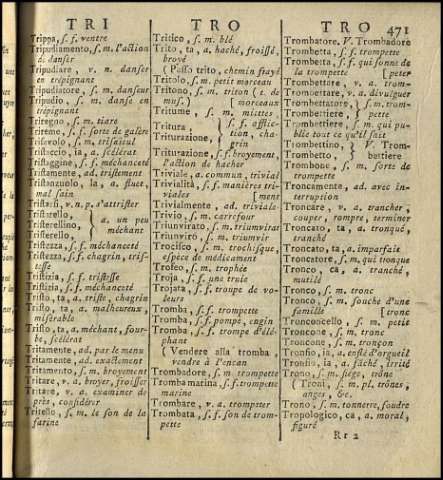 TRI TRO TRO 471
Trippa, s. f. ventre
Tripudiamento, s. m. l'action
de danser
Tripudiare, v. n. danser
en trépignant
Tripudiatore, s. m. danseur
Tripudio, s. m. danse en
trépignant
Triregno, s. m. tiare
Trireme, s. f. sorte de galére
Trisavolo, s. m. trisaieul
Tristaccio, ia, a. scélérat
Tristaggine, s. f. méchanceté
Tristamente, ad. tristement
Tristanzuolo, la, a. fluet,
mal sain
Tristarsi, v. n. p. s'attrister
Tristarello,
Tristerellino,
Tristerello,
} a. un peu
méchant
Tristezza, s. f. méchanceté
Tristezza, s. f. chagrin, tris-
tesse
Tristizia, s. f. tristesse
Tristizia, s. f. méchanceté
Tristo, ta, a. triste, chagrin
Tristo, ta, a. malheureux,
misérable
Tristo, ta, a. méchant, four-
be, scélérat
Tritamente, ad. par le menu
Tritamente, ad. exactement
Tritamento, s. m. broyement
Tritare, v. a. broyer, froisser
Tritare, v. a. examiner de
près, considérer
Tritello, s. m. le son de la
farine
Tritico, s. m. blé
Trito, ta, a. haché, froissé,
broyé
( Passo trito, chemin frayé
Tritolo, s. m. petit morceau
Tritono, s. m. triton ( t. de
mus. ) [ morceaux
Tritume, s. m. miettes,
Tritura
Triturazione,
} s. f. afflic-
tion, cha-
grin
Triturazione, s. f. broyement,
l'action de hacher
Triviale, a. commun, trivial
Trivialità, s. f. manières tri-
viales [ ment
Trivialmente, ad. triviale-
Trivio, s. m. carrefour
Triunvirato, s. m. triumvirat
Triunviro, s. m. triumvir
Trocisco, s. m. trochisque,
espèce de médicament
Trofeo, s. m. trophée
Troja, s. f. une truie
Trojata, s. f. troupe de vo-
leurs
Tromba, s. f. trompette
Tromba, s. f. pompe, engin
Tromba, s. f. trompe d'élé-
phant
( Vendere alla tromba,
vendre à l'encan
Trombadore, s. m. trompette
Tromba marina, s. f. trompette
marine
Trombare, v. a. trompeter
Trombata, s. f. son de trom-
pette
Trombatore. V. Trombadore
Trombetta, s. f. trompette
Trombetta, s. f. qui sonne de
la trompette [ peter
Trombettare, v. a. trom-
Trombettare, v. a. divulguer
Trombettatore,
Trombettiere
} s. m. trom-
pette
Trombettiere, s. m. qui pu-
blie tout ce qu'il sait
Trombettino,
Trombetto,
} V. Trom-
bettiere
Trombone, s. m. sorte de
trompette
Troncamente, ad. avec in-
terruption
Troncare, v. a. trancher,
couper, rompre, terminer
Troncato, ta, a. tronqué,
tranché
Troncato, ta, a. imparfait
Troncatore, s. m. qui tronque
Tronco, ca, a. tranché,
mutilé
Tronco, s. m. tronc
Tronco, s. m. souche d'une
famille [ tronc
Tronconcello, s. m. petit
Troncone, s. m. tronc
Troncone, s. m. tronçon
Tronfio, ia, a. enflé d'orgueil
Tronfio, ia, a. fâché, irrité
Trono, s. m. siége, trône
( Troni, s. m. pl. trônes,
anges, &c.
Trono, s. m. tonnerre, foudre
Tropologico, ca, a. moral,
figuré
Rr 2